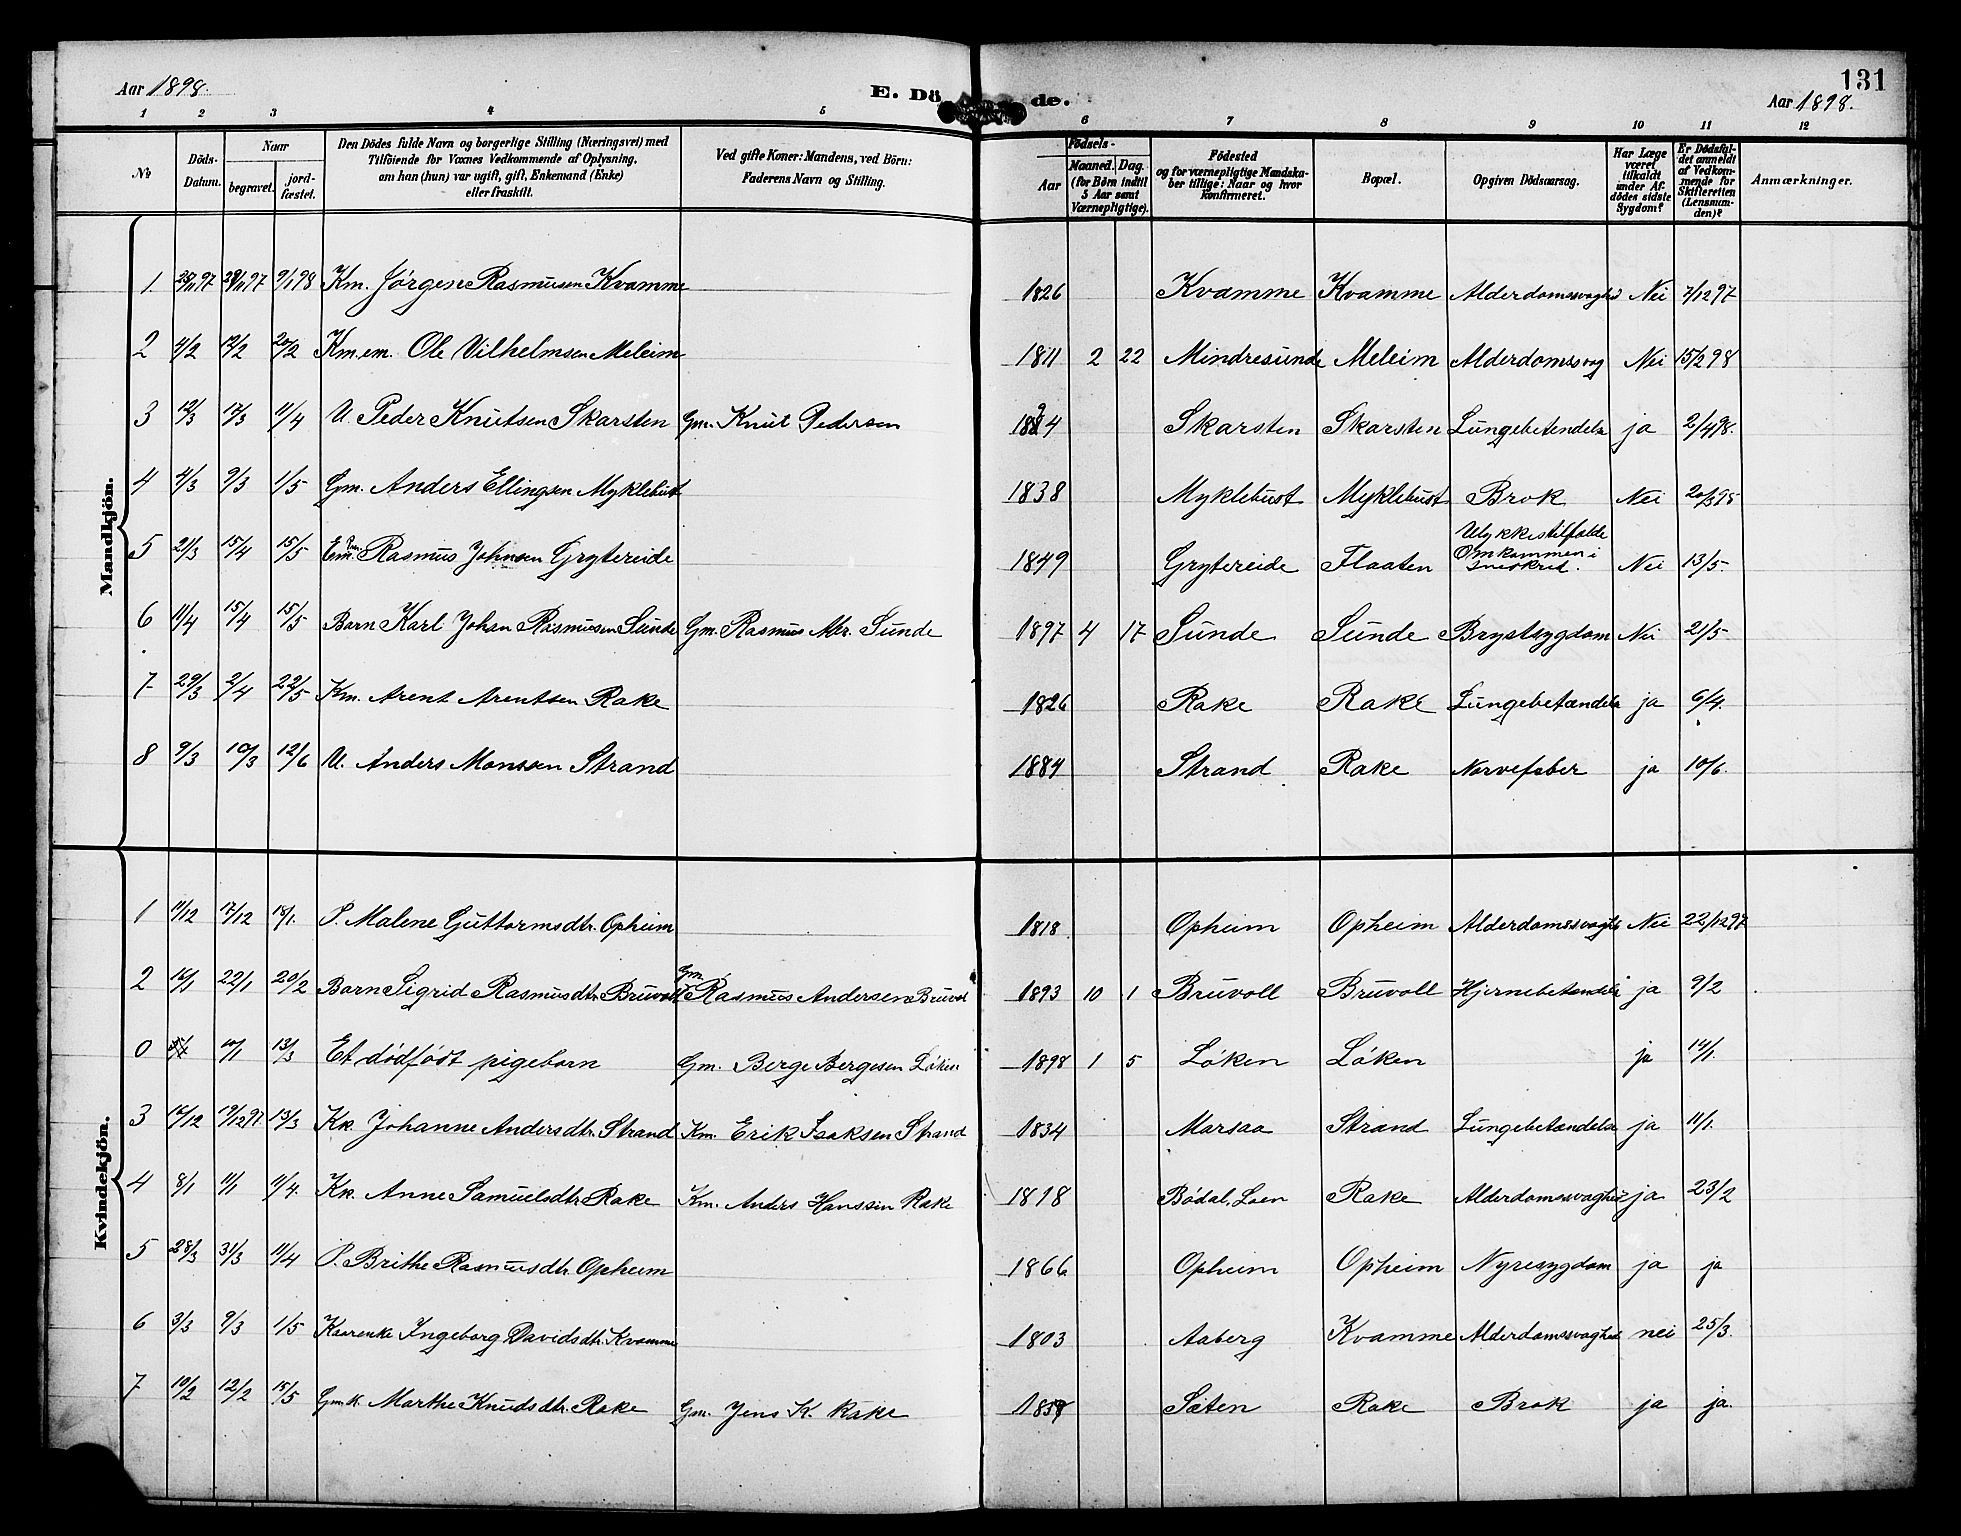 Aar 1898.
E. Dö de.
131
Aar 1898.
1 2 3 4 5 6 7 8 9 10 11 12
No
Döds-Datum.
Naar
begravet.
jord-fæstet.
Den Dödes fulde Navn og borgerlige Stilling (Næringsvei) med
Tilföiende for Voxnes Vedkommende af Oplysning,
om han (hun) var ugift, gift, Enkemand (Enke)
eller fraskilt.
Ved gifte Koner: Mandens, ved Börn:
Faderens Navn og Stilling.
Födsels-
Aar
Maaned. Dag.
(for Börn indtil
5 Aar samt
Værnepligtige).
Födested
og for værnepligtige Mandska-
ber tillige: Naar og hvor
konfirmeret.
Bopæl.
Opgiven Dödsaarsag.
Har Læge
været
tilkaldt
under Af-
dödes sidste
Sygdom?
Er Dödsfal-
det anmeldt
af Vedkom-
mende for
Skifteretten
(Lensman-
den)?
Anmærkninger.
Mandkjön.
1. 29/11 97 9/1 98 Km. Jørgen Rasmusen Kvamme 1826 Kvamme Kvamme Alderdomssvaghd Nei 7/12 97
2 4/2 12/2 20/2 Km. em. Ole Vilhelmsen Meleim 1811 2 22 Mindresunde Meleim Alderdomssvag Nei 15/2 98
3 12/3 17/3 11/4 U. Peder Knutsen Skarsten Gm. Knut Pedersen Skarsten Skarsten Lungebetændelse ja 2/4 98.
4 4/3 9/3 1/5 Gm. Anders Ellingsen Myklebust 1838 Myklebust Myklebust Brok Nei
5 2/3 15/4 15/5 Rasmus Johnsen Grytereide 1849 Grytereide Flaaten Ulykkestilfælde
Omkommen i
sneskred. Nei 13/5.
6 11/4 15/4 15/5 Barn Karl Johan Rasmusen Sunde Gm. Rasmus Mkr. Sunde 1897 4 17 Sunde Sunde Brystsygdom Nei 21/5
7 29/3 2/4 22/5 Km. Arent Arentsen Rake 1826 Rake Rake Lungebetændelse ja 6/4.
8 9/3 10/3 12/6 U. Anders Monssen Strand 1884 Strand Rake Nervefeber ja 10/6.
Kvindekjön.
1 11/12 17/12 18/1. P. Malene Guttormsdtr. Opheim 1818 Opheim Opheim Alderdomssvaghd Nei 22/12 97
2 16/1 22/1 20/2 Barn Sigrid Rasmusdtr Bruvoll Gm. Rasmus Andersen Bruvol 1893 10 1 Bruvoll Bruvoll Hjernebetændelse ja 9/2
0 10/1 13/3 Et dødfødt pigebarn Gm. Berge Bergesen Løken 1898 1 5 Løken Løken ja 14/1.
3 17/12 19/12 97 13/3 Kk. Johanne Andersdtr. Strand Km. Erik Isaksen Strand 1834 Marsaa Strand Lungebetændelse ja 11/1.
4 8/1 11/1 11/4. Kk. Anne Samuelsdtr Rake Km. Anders Hanssen Rake 1818 Bødal, Loen Rake Alderdomssvaghed ja 23/2
5 28/3 31/3 11/4 P. Brithe Rasmusdtr. Opheim 1866 Opheim Opheim Nyresygdom ja ja
6 3/3 9/3 1/5 Kaarenke Ingeborg Davidsdtr. Kvamme 1803 Aaberg Kvamme Alderdomssvaghed nei 25/3.
7 10/2 12/2 15/5 Gmk. Marthe Knudsdtr. Rake Gm. Jens K. Rake Sæten Rake Brok ja ja.